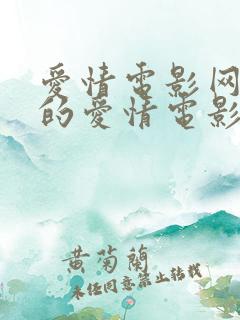 爱情电影网
的爱情电影
黄菊兰
未经同意禁止转载